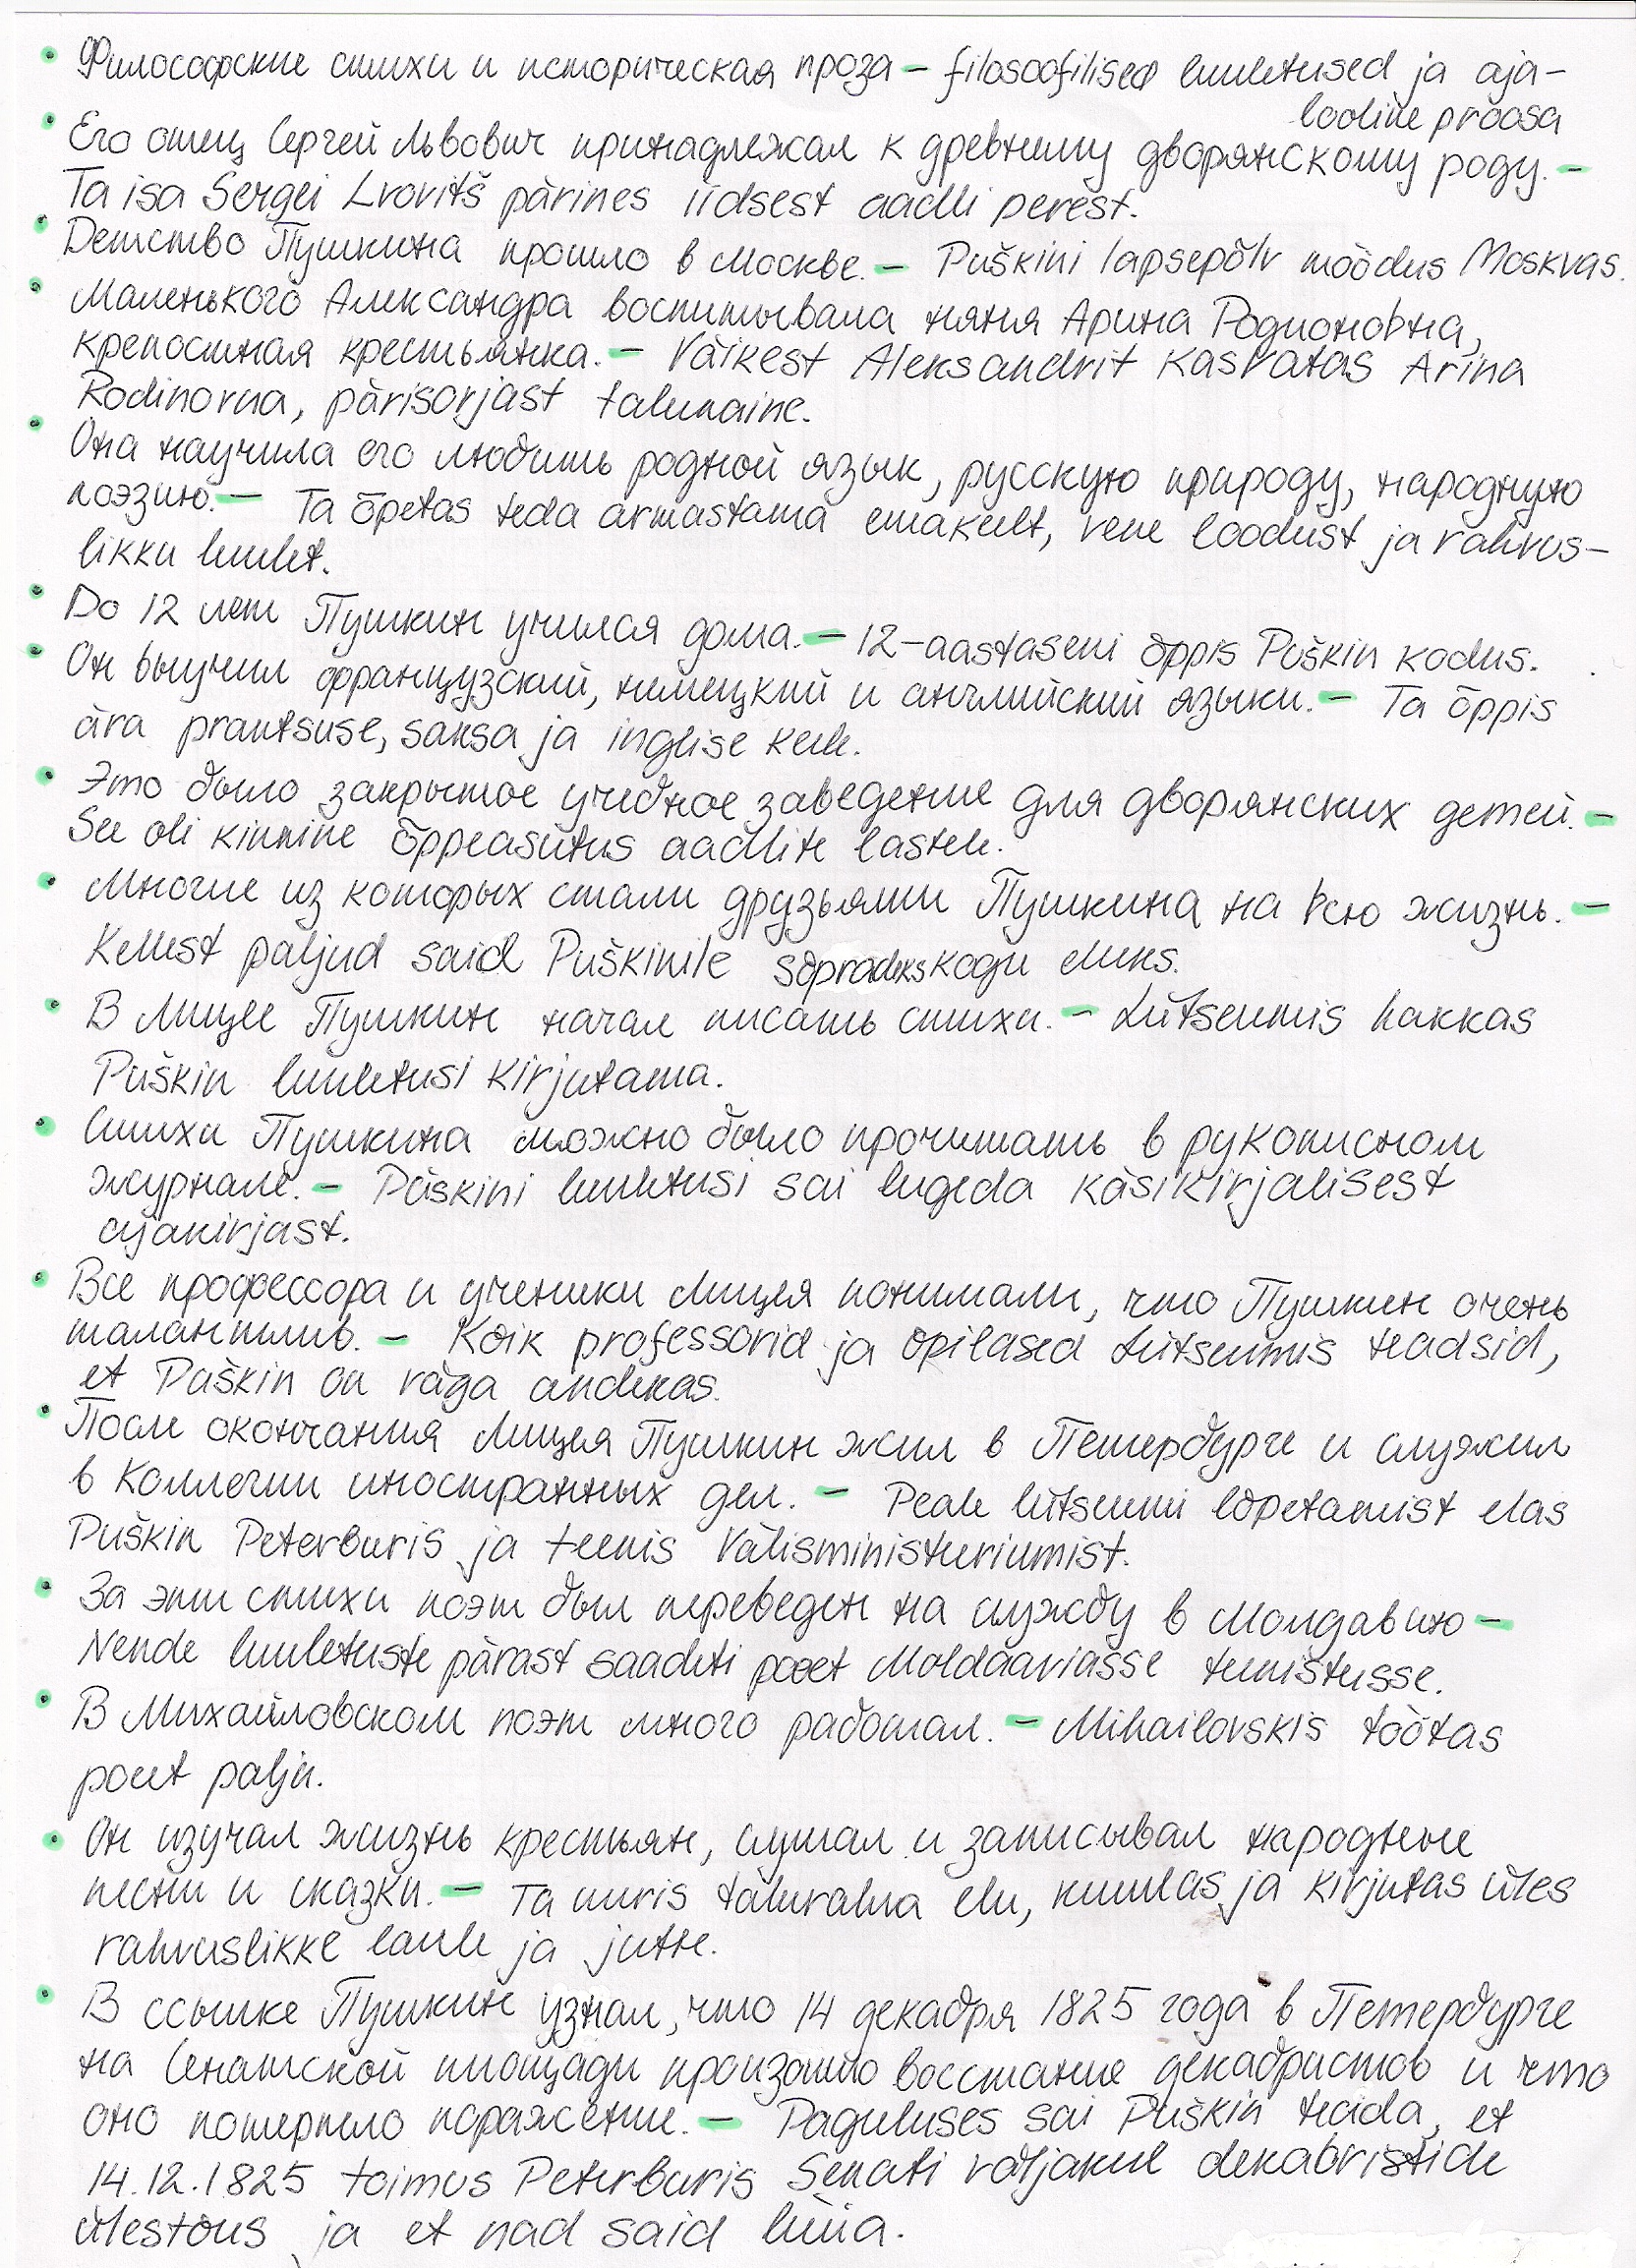 • Философские стихи и историческая проза – filosoofilised luuletused ja aja-
looline proosa
• Его отец Сергей Львович принадлежал к древнему дворянскому роду. –
Ta isa Sergei Lvovitš pärines iidsest aadli perest.
• Детство Пушкина прошло в Москве. – Puškini lapsepõlv möödus Moskvas.
• Маленького Александра воспитывала няня Арина Родионовна,
крепостная крестьянка. – Väikest Aleksandrit kasvatas Arina
Rodinovna, pärisorjast talunaine.
• Она научила его любить родной язык, русскую природу, народную
поэзию. – Ta õpetas teda armastama emakeelt, vene loodust ja rahvus-
likku luulet.
• До 12 лет Пушкин учился дома. – 12-aastaseni õppis Puškin kodus.
• Он выучил французский, немецкий и английский языки. – Ta õppis
ära prantsuse, saksa ja inglise keele.
• Это было закрытое учебное заведение для дворянских детей. –
See oli kinnine õppeasutus aadlite lastele.
• Многие из которых стали друзьями Пушкина на всю жизнь. –
Kellest paljud said Puškinile sõpradeks kogu eluks.
• В Лицее Пушкин начал писать стихи. – Lütseumis hakkas
Puškin luuletusi kirjutama.
• Стихи Пушкина можно было прочитать в рукописном
журнале. – Puškini luuletusi sai lugeda käsikirjalisest
ajakirjast.
• Все профессора и ученики Лицея понимали, что Пушкин очень
талантлив. – Kõik professorid ja õpilased Lütseumis teadsid,
et Puškin on väga andekas.
• После окончания Лицея Пушкин жил в Петербурге и служил
в Коллегии иностранных дел. – Peale lütseumi lõpetamist elas
Puškin Peterburis ja teenis Välisministeeriumist.
• За эти стихи поэт был переведен на службу в Молдавию –
Nende luuletuste pärast saadeti poeet Moldaaviasse teenistusse.
• В Михайловском поэт много работал. – Mihailovskis töötas
poeet palju.
• Он изучал жизнь крестьян, слушал и записывал народные
песни и сказки. – Ta uuris talurahva elu, kuulas ja kirjutas üles
rahvuslikke laule ja jutte.
• В ссылке Пушкин узнал, что 14 декабря 1825 года в Петербурге
на Сенатской площади произошло восстание декабристов и что
оно потерпело поражение. – Paguluses sai Puškin teada, et
14.12.1825 toimus Peterburis Senati väljakul dekabristide
ülestõus ja et nad said lüüa.